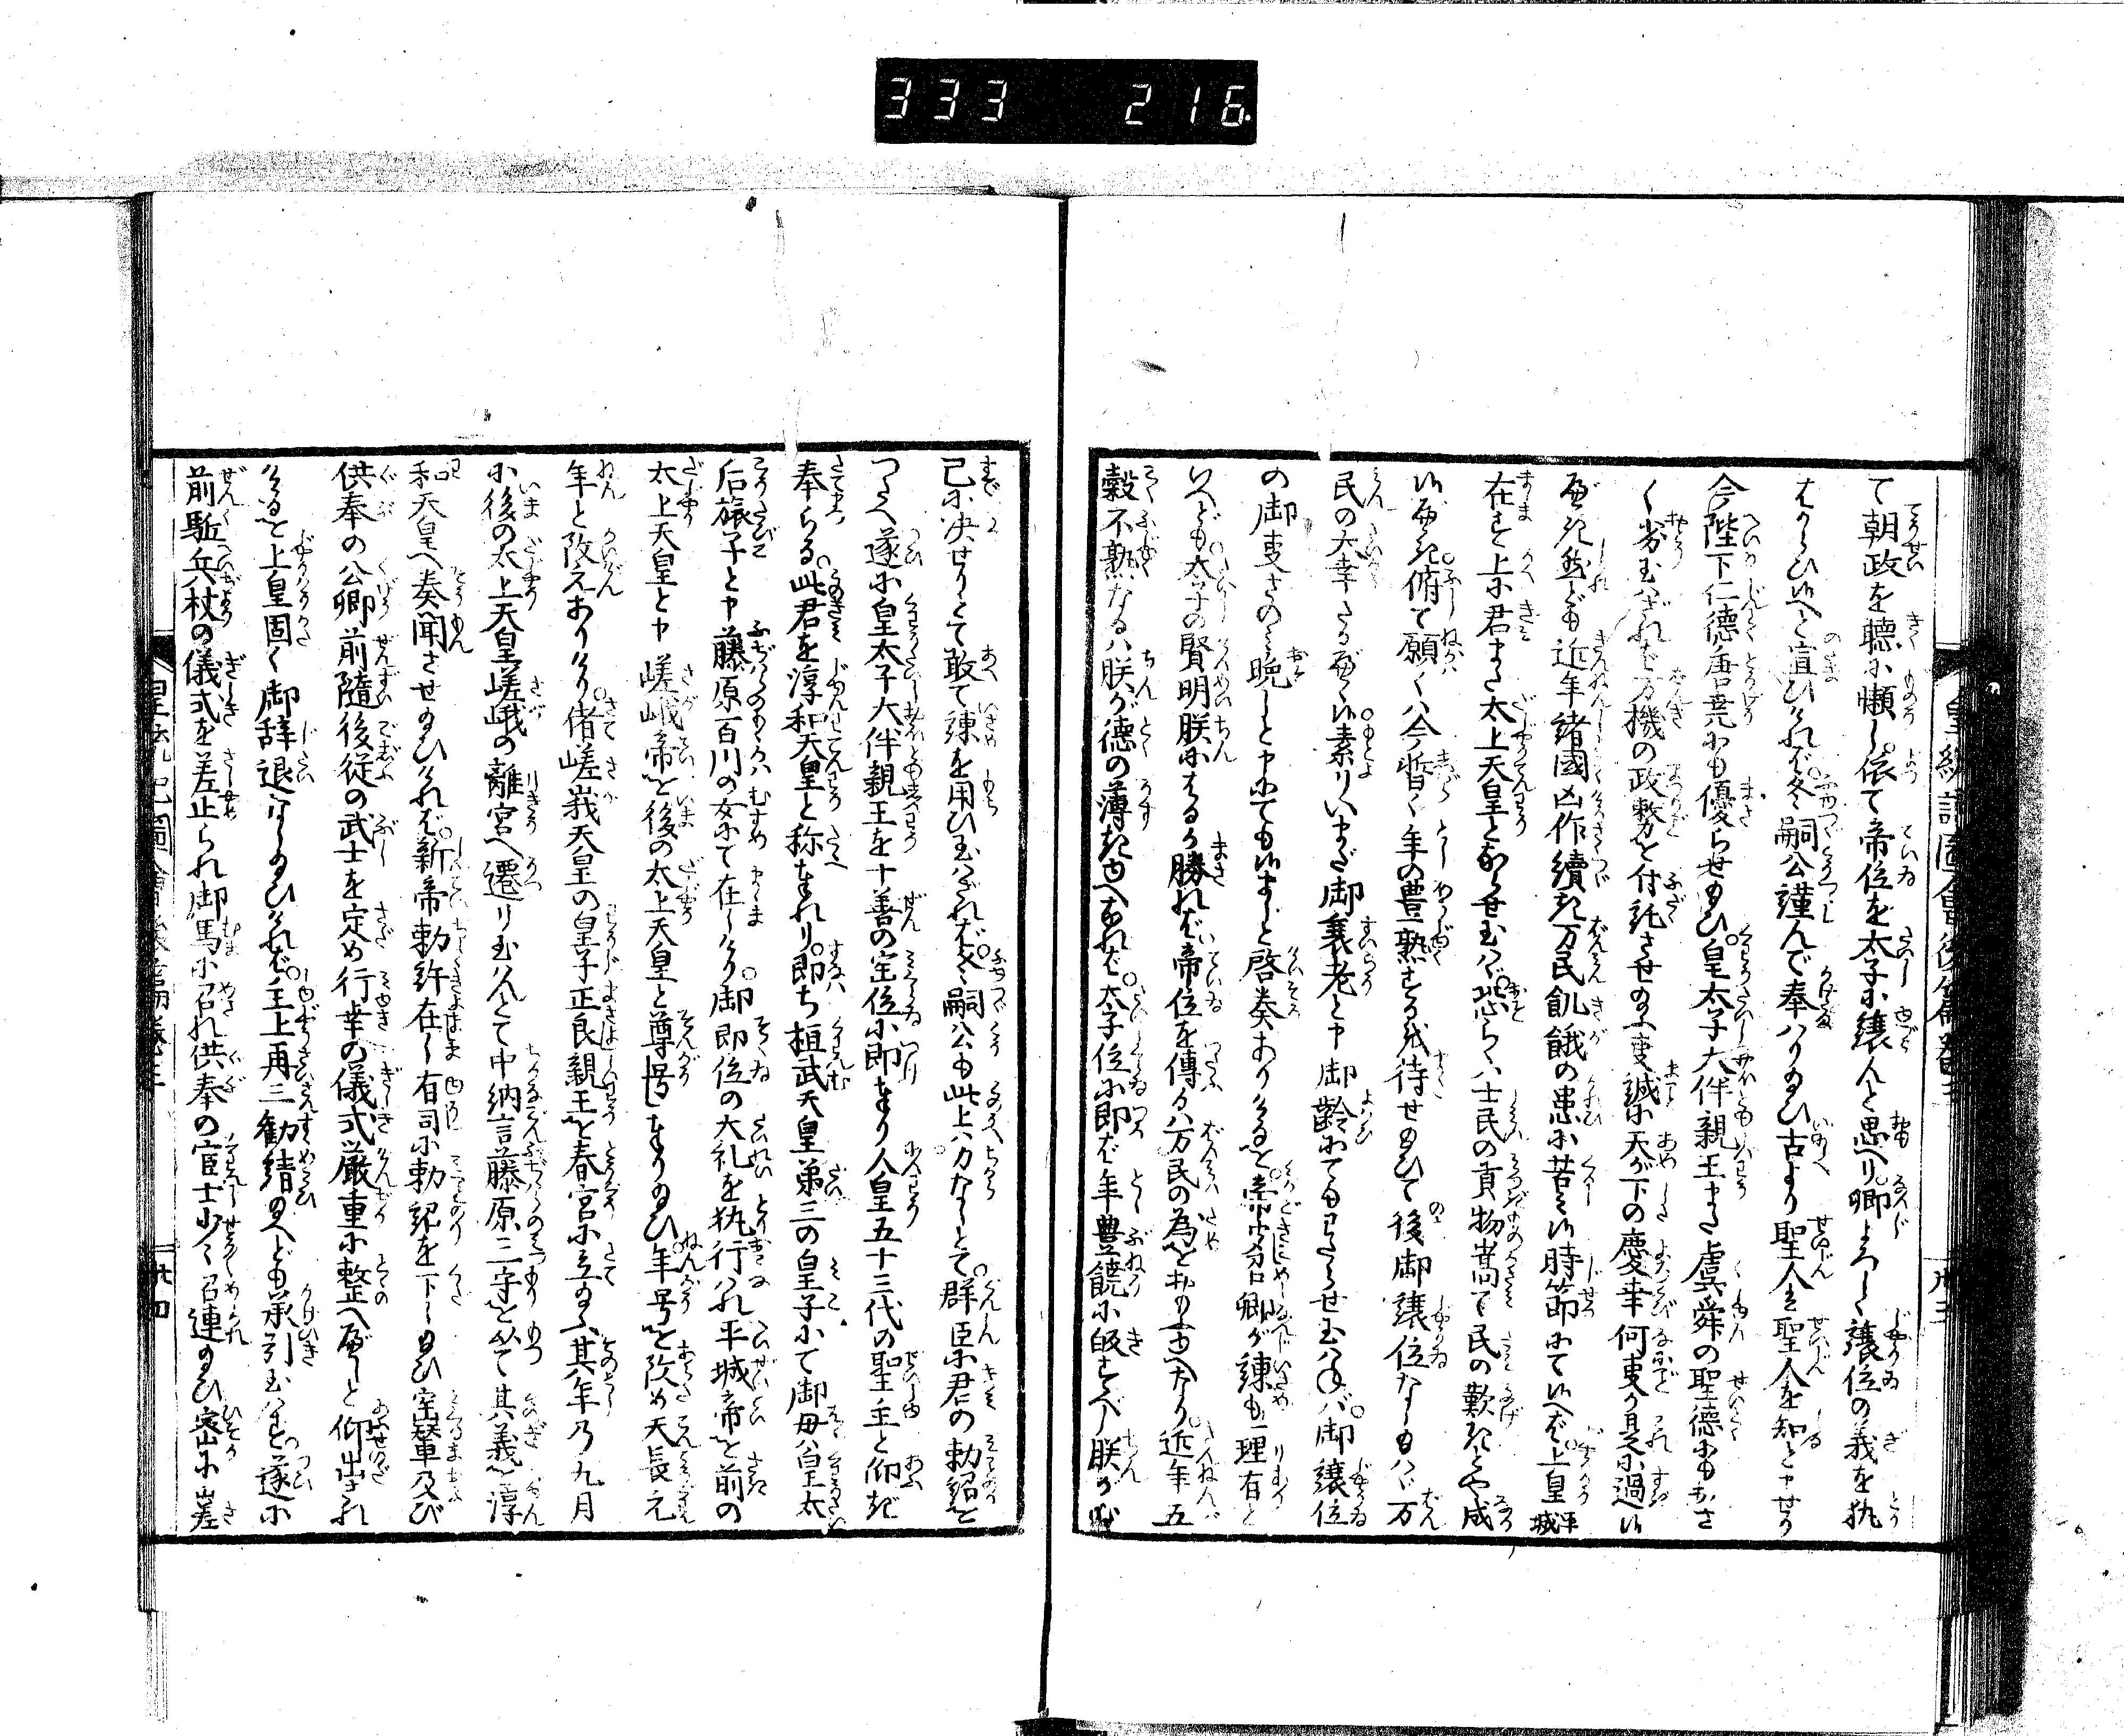 333 216
て朝政を聴に懶し。依て帝位を太子に譲んと思へり。卿よろしく譲位の義を執
はからひ候へと宣ひければ。冬嗣公謹んで奉はり給ひ古より聖人は聖人を知と申せり
今陛下仁徳唐尭にも優らせ給ひ。皇太子大伴親王また虞舜の聖徳にもおさ
〳〵劣玉はざれば。万機の政務を付託させ給ふ事誠に天が下の慶幸何事か是に過候
べき。然ども近年諸國凶作續き万民飢餓の患に苦み候時節にて候へば。上皇平城
在すと上に君また太上天皇とならせ玉はゞ。恐らくは士民の貢物嵩で民の歎きとや成
候べき。俯て願くは今暫く年の豊熟するを待せ給ひて後御譲位なし給はゞ万
民の大幸さるべく候。素りいまだ御衰老と申御齢にてもわたらせ玉はねば。御譲位
の御事さのみ晩しと申にても候まじと啓奏ありけるを。帝聞召卿が諫も一理有と
いへども。太子の賢明朕にはるか勝れば。帝位を傳るは万民の為を思ふゆへなり。近年五
穀不熟なるは朕が徳の薄きゆへなれば。太子位に即ば年豊饒に皈すべし朕が心
已に决せりとて敢て諫を用ひ玉はざれば。冬嗣公も此上は力なしとて。群臣に君の勅詔を
つたへ遂に皇太子大伴親王を十善の宝位に即まゐらせ人皇五十三代の聖主と仰ぎ
奉らる。此君を淳和天皇と称奉れり。即ち桓武天皇第三の皇子にて御母は皇太
后旅子と申藤原百川の女にて在しけり。御即位の大礼を執行はれ平城帝を前の
太上天皇と申嵯峨帝を後の太上天皇と尊号奉り給ひ。年号を改め天長元
年と改元ありけり。偖嵯峨天皇の皇子正良親王を春宮に立給ふ。其年乃九月
に後の太上天皇嵯峨の離宮へ遷り玉はんとて中納言藤原三守を以て其義を淳
和天皇へ奏聞させ給ひければ。新帝勅許在し有司に勅詔を下し給ひ宝輦及び
供奉の公卿前随後従の武士を定め行幸の儀式厳重に整へべしと仰出され
けるを上皇固く御辞退なし給ひければ。主上再三勧請給へども承引玉はず。遂に
前駈兵杖の儀式を差止られ御馬に召れ供奉の官士少々召連給ひ密に嵯
廿四